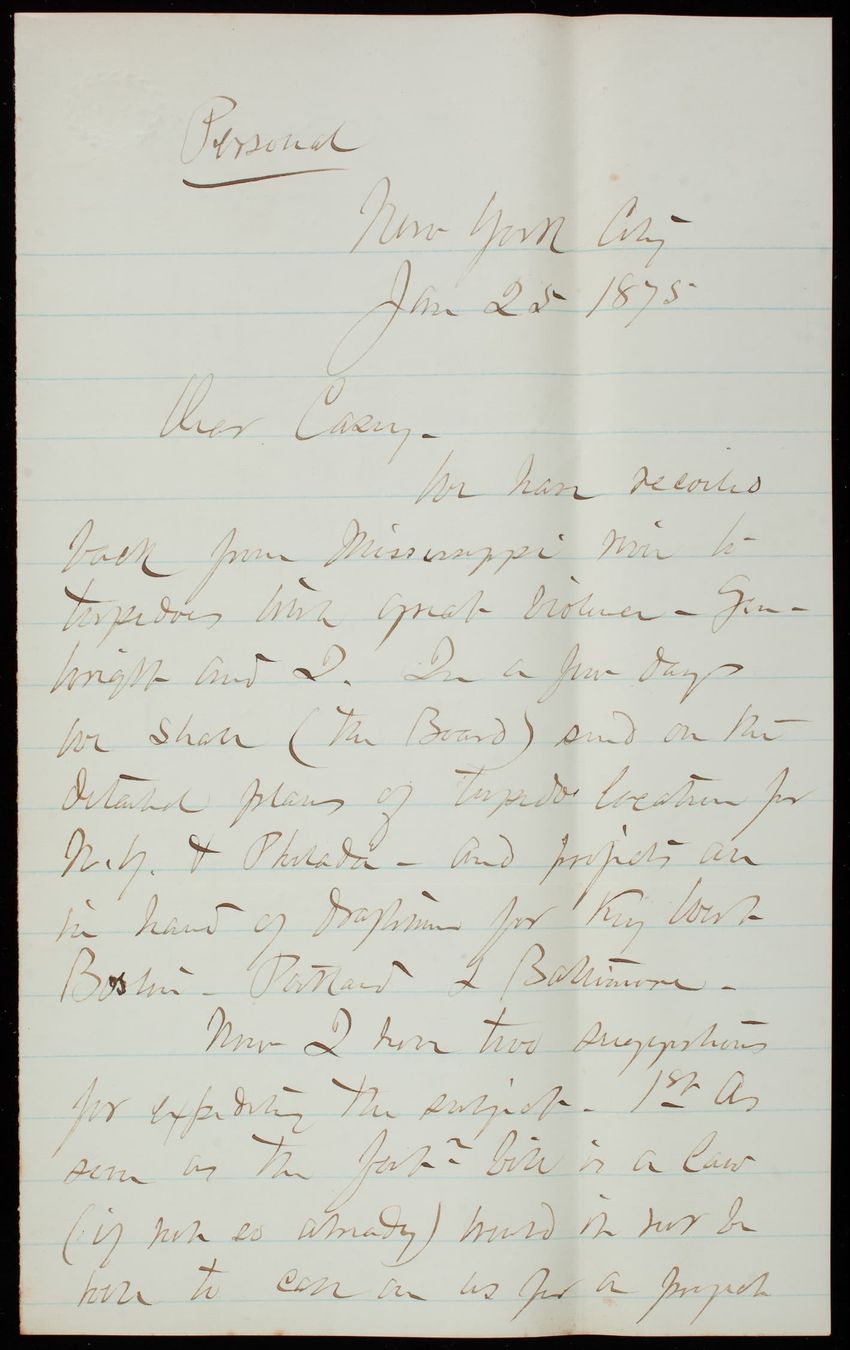 Personal
New York City
Jan 25 1875
Dear Casey -
We have recoiled
back from Mississippi river to
torpedoes with great violence - Gen -
Wright and I. In a few days
we shall (the Board) send on the
detailed plans of torpedo location for
N.Y. & Philada - and projects are
in hand of draftsman for Key West
Boston - Portland & Baltimore -
Now I have two suggestions
for expediting the subject - 1st As
soon as the Fortn bill is a law
(if not so already) would it not be
well to call on us for a project